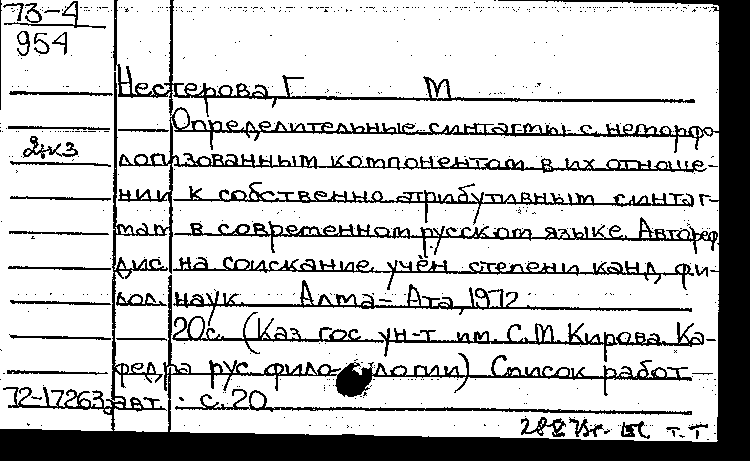 73-4
954
Нестерова, Г М
Определительные синтагмы с неморфо-
2 экз
логизованным компонентом в их отноше-
нии к собственно атрибутивным синтаг-
мам в современном русском языке. Автореф
дис. на соискание учён степени канд. фи-
лол. наук. Алма-Ата, 1972.
20с. (Каз гос ун-т им. С.М. Кирова. Ка-
федра рус филологии) Список работ
72-17263 авт.: с. 20